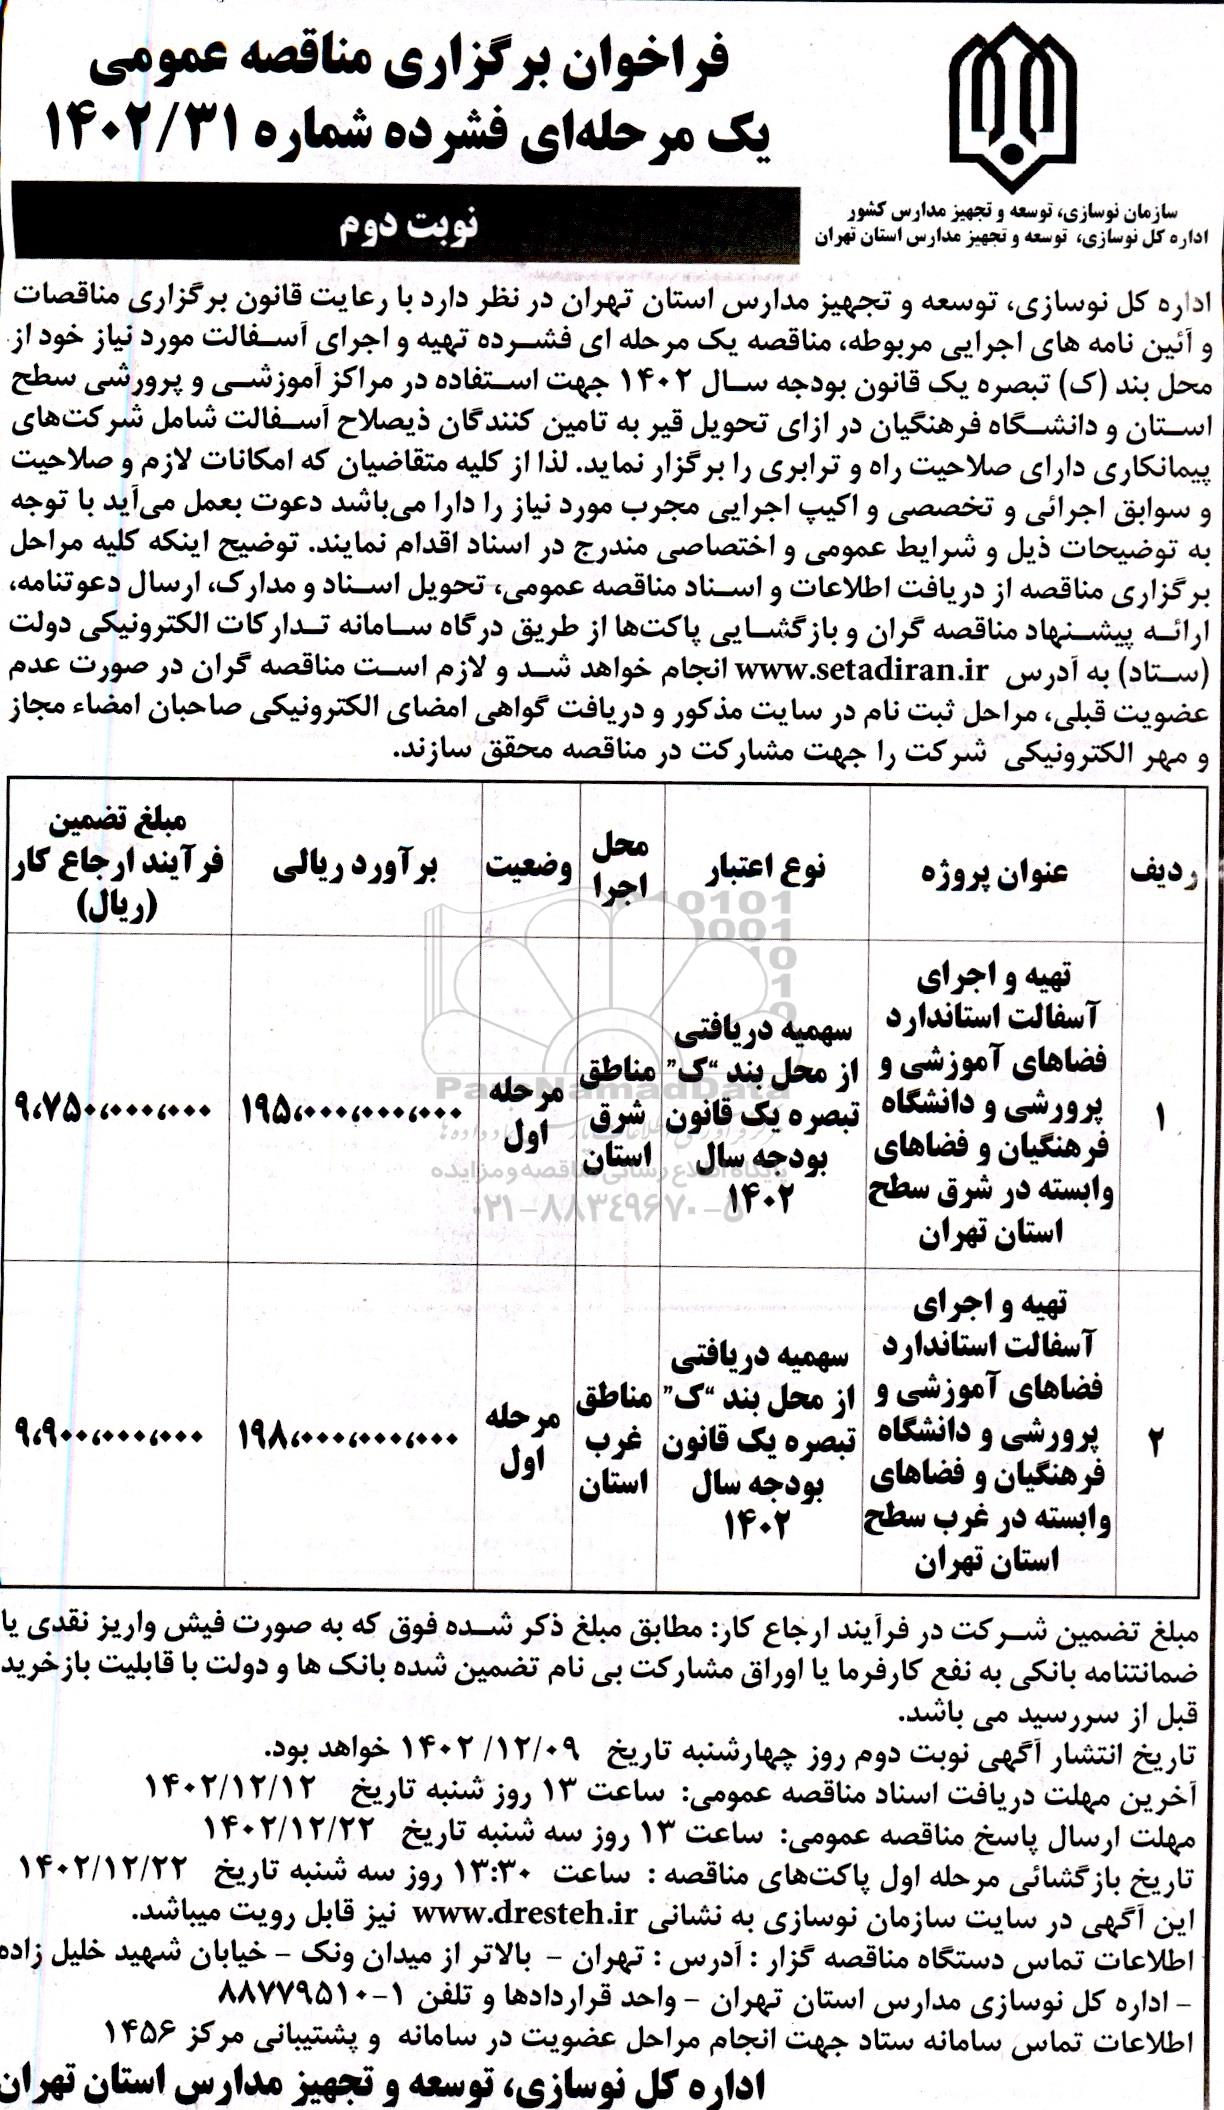 فراخوان برگزاری مناقصه عمومی
یک مرحله‌ای فشرده شماره ۱۴۰۲/۳۱
نوبت دوم
سازمان نوسازی، توسعه و تجهیز مدارس کشور
اداره کل نوسازی، توسعه و تجهیز مدارس استان تهران
اداره کل نوسازی، توسعه و تجهیز مدارس استان تهران در نظر دارد با رعایت قانون برگزاری مناقصات
و آئین نامه های اجرایی مربوطه، مناقصه یک مرحله ای فشرده تهیه و اجرای آسفالت مورد نیاز خود از
محل بند (ک) تبصره یک قانون بودجه سال ۱۴۰۲ جهت استفاده در مراکز آموزشی و پرورشی سطح
استان و دانشگاه فرهنگیان در ازای تحویل قیر به تامین کنندگان ذیصلاح آسفالت شامل شرکت‌های
پیمانکاری دارای صلاحیت راه و ترابری را برگزار نماید. لذا از کلیه متقاضیان که امکانات لازم و صلاحیت
و سوابق اجرائی و تخصصی و اکیپ اجرایی مجرب مورد نیاز را دارا می‌باشد دعوت بعمل می‌آید با توجه
به توضیحات ذیل و شرایط عمومی و اختصاصی مندرج در اسناد اقدام نمایند. توضیح اینکه کلیه مراحل
برگزاری مناقصه از دریافت اطلاعات و اسناد مناقصه عمومی، تحویل اسناد و مدارک، ارسال دعوتنامه،
ارائه پیشنهاد مناقصه گران و بازگشایی پاکت‌ها از طریق درگاه سامانه تدارکات الکترونیکی دولت
(ستاد) به آدرس www.setadiran.ir انجام خواهد شد و لازم است مناقصه گران در صورت عدم
عضویت قبلی، مراحل ثبت نام در سایت مذکور و دریافت گواهی امضای الکترونیکی صاحبان امضاء مجاز
و مهر الکترونیکی شرکت را جهت مشارکت در مناقصه محقق سازند.
ردیف
عنوان پروژه
نوع اعتبار
محل
اجرا
وضعیت
برآورد ریالی
مبلغ تضمین
فرآیند ارجاع کار
(ریال)
۱
تهیه و اجرای
آسفالت استاندارد
فضاهای آموزشی و
پرورشی و دانشگاه
فرهنگیان و فضاهای
وابسته در شرق سطح
استان تهران
سهمیه دریافتی
از محل بند “ک”
تبصره یک قانون
بودجه سال
۱۴۰۲
مناطق
شرق
استان
مرحله
اول
۱۹۵،۰۰۰،۰۰۰،۰۰۰
۹،۷۵۰،۰۰۰،۰۰۰
۲
تهیه و اجرای
آسفالت استاندارد
فضاهای آموزشی و
پرورشی و دانشگاه
فرهنگیان و فضاهای
وابسته در غرب سطح
استان تهران
سهمیه دریافتی
از محل بند “ک”
تبصره یک قانون
بودجه سال
۱۴۰۲
مناطق
غرب
استان
مرحله
اول
۱۹۸،۰۰۰،۰۰۰،۰۰۰
۹،۹۰۰،۰۰۰،۰۰۰
پایگاه اطلاع رسانی مناقصه و مزایده
۰۲۱-۸۸۳۴۹۶۷۰-۵
مبلغ تضمین شرکت در فرآیند ارجاع کار: مطابق مبلغ ذکر شده فوق که به صورت فیش واریز نقدی یا
ضمانتنامه بانکی به نفع کارفرما یا اوراق مشارکت بی نام تضمین شده بانک ها و دولت با قابلیت بازخرید
قبل از سررسید می باشد.
تاریخ انتشار آگهی نوبت دوم روز چهارشنبه تاریخ ۱۴۰۲/۱۲/۰۹ خواهد بود.
آخرین مهلت دریافت اسناد مناقصه عمومی: ساعت ۱۳ روز شنبه تاریخ ۱۴۰۲/۱۲/۱۲
مهلت ارسال پاسخ مناقصه عمومی: ساعت ۱۳ روز سه شنبه تاریخ ۱۴۰۲/۱۲/۲۲
تاریخ بازگشائی مرحله اول پاکت‌های مناقصه : ساعت ۱۳:۳۰ روز سه شنبه تاریخ ۱۴۰۲/۱۲/۲۲
این آگهی در سایت سازمان نوسازی به نشانی www.dresteh.ir نیز قابل رویت میباشد.
اطلاعات تماس دستگاه مناقصه گزار : آدرس : تهران - بالاتر از میدان ونک - خیابان شهید خلیل زاده
- اداره کل نوسازی مدارس استان تهران - واحد قراردادها و تلفن ۱-۸۸۷۷۹۵۱۰
اطلاعات تماس سامانه ستاد جهت انجام مراحل عضویت در سامانه و پشتیبانی مرکز ۱۴۵۶
اداره کل نوسازی، توسعه و تجهیز مدارس استان تهران